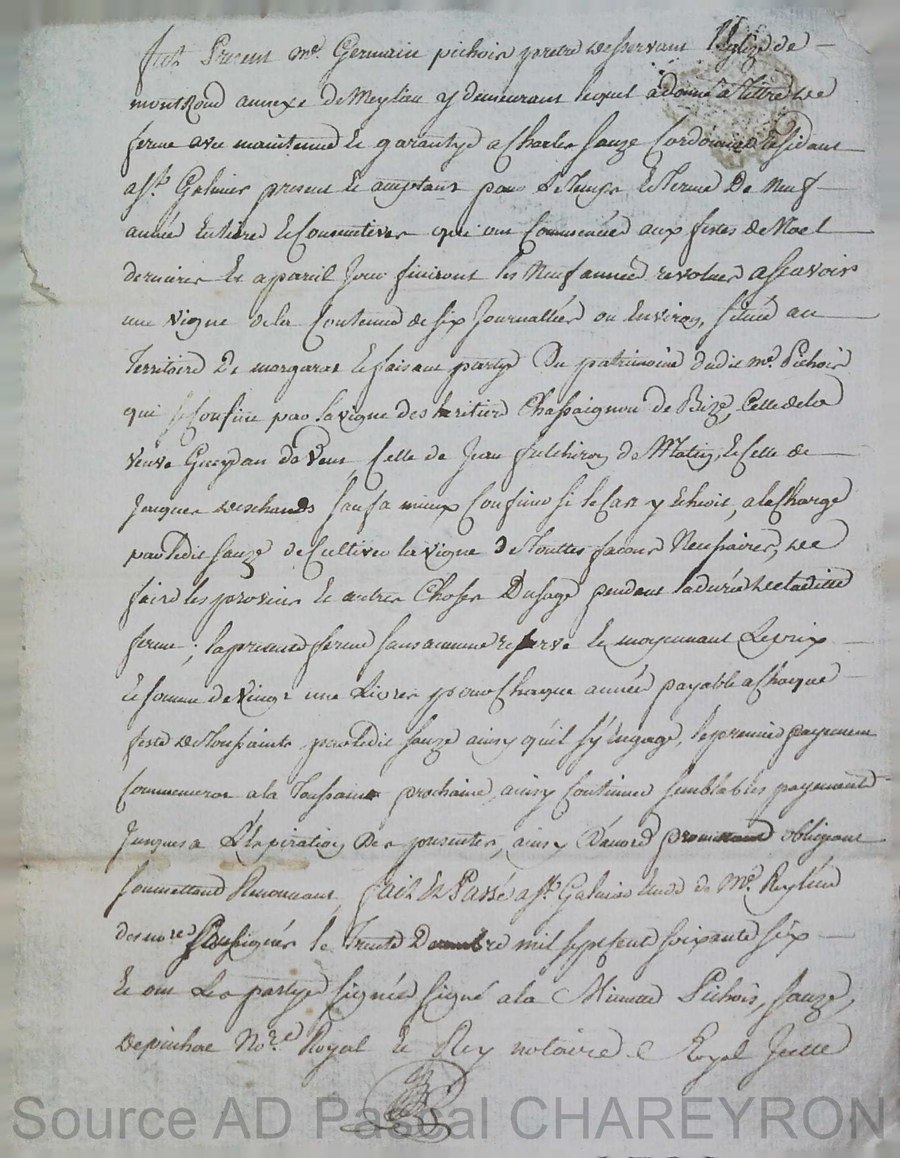 fut Present me. Germain pichois pretre desservant l'Eglize de
montRond annexe de Meylieu y demeurant lequel a donné a tiltre de
ferme avec maintenue et garantye a Charles Sauze Cordonnier Residant
a St. Galmier present et acceptant pour Le temps et Terme De Neuf
année Entiere et Consecutives qui ont Commencée aux festes de Noel
dernieres et a pareil Jour finiront les Neuf année revolues a Scavoir
une Vigne de la Contenue de six Journallées ou Environ, située au
Territoire De margaras et faisant partye Du patrimoine dudit me. Pichois
qui se Confine par la vigne des heritiers Chassaignon de Bize, Celle de la
veuve Gueydan de Vent, Celle de Jean fulchiron de Matin, et Celle de
Jacques deschands saufs a mieux Confiner si le Cas y Echeoit, a la Charge
par ledit Sauze de Cultiver la vigne De touttes facons Neussaires, de
faire les provins et autres Choses D'usage pendant la durée de laditte
ferme; la presente ferme sans aucune reserve et moyennant Le prix
et somme de Vingt une Livres pour Chaque année payable a Chaque
feste de Toussaints par ledit Sauze ainsy qu'il s'y Engage, le premier payement
Commencera a la Toussaint prochaine, ainsy Continuer semblables payements
Jusques a L'Expiration Des presentes, ainsy D'acord promettant obligeant
soumettant Renonceant, fait Et Passé a St. Galmier Etude de Me. Rey l'un
des nores. Soussignés le Trente Decembre mil sept cent soixante six
Et ont Les partyes signées signé a la Minute Pichois, Sauze,
depinhac Nore. Royal Et Rey notaire Royal Jussé
Source AD Pascal CHAREYRON